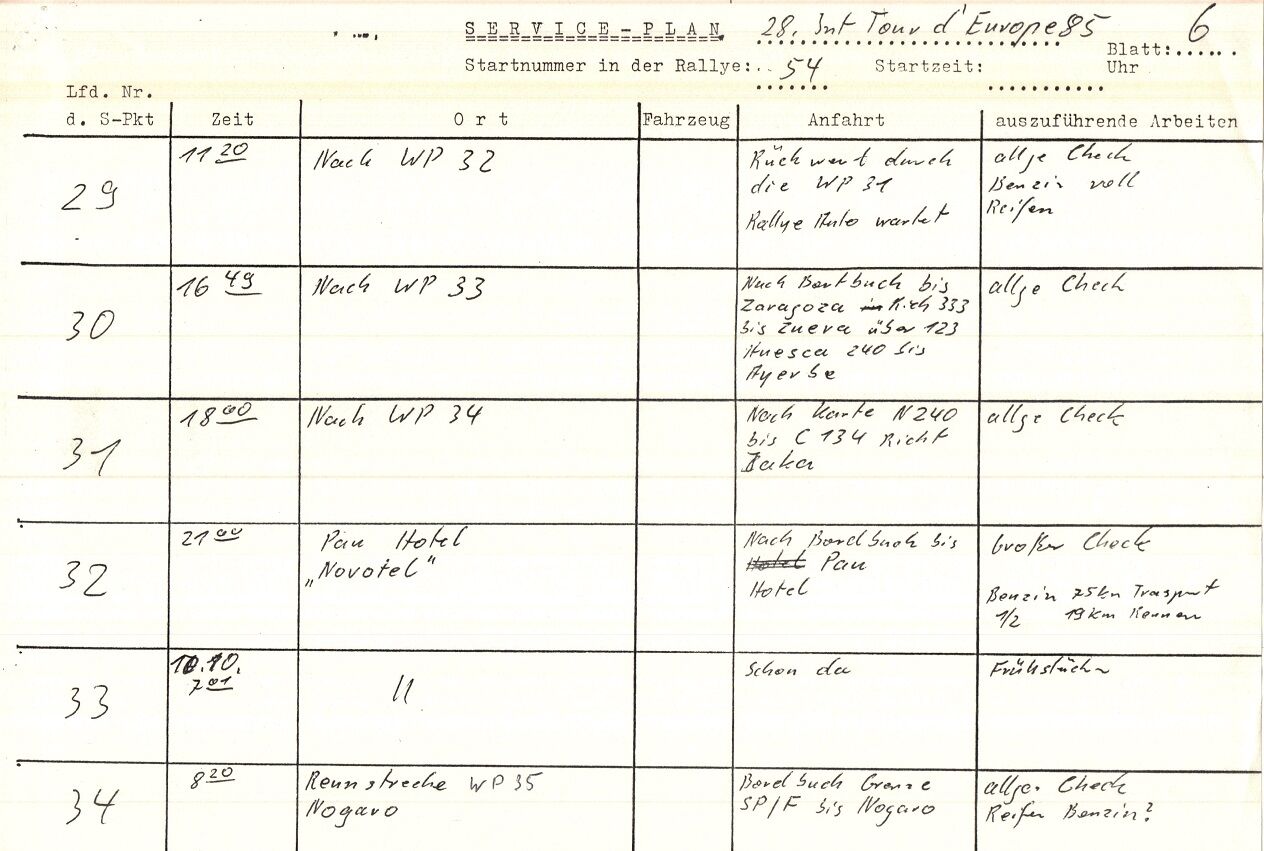 SERVICE-PLAN 28. Int Tour d'Europe 85
Blatt: 6
Startnummer in der Rallye: 54 Startzeit: Uhr
Lfd. Nr.
d. S-Pkt Zeit Ort Fahrzeug Anfahrt auszuführende Arbeiten
29 11 20 Nach WP 32
Rückwert durch
die WP 31
Rallye Auto wartet
allge Check
Benzin voll
Reifen
30 16 49 Nach WP 33
Nach Bortbuch bis
Zaragoza in Rich 333
bis Zuera über 123
Huesca 240 bis
Ayerbe
allge Check
31 18 00 Nach WP 34
Nach Karte N 240
bis C 134 Richt
Jaka
allge Check
32 21 00 Pau Hotel
„Novotel"
Nach Bordbuch bis
Hotel Pau
Hotel
Großer Check
Benzin 75km Trasport
1/2 19km Rennen
33 10.10.
7 01
"
Schon da
Frühstück
34 8 20 Rennstrecke WP 35
Nogaro
Bordbuch Grenze
SP/F bis Nogaro
allge. Check
Reifen Benzin?